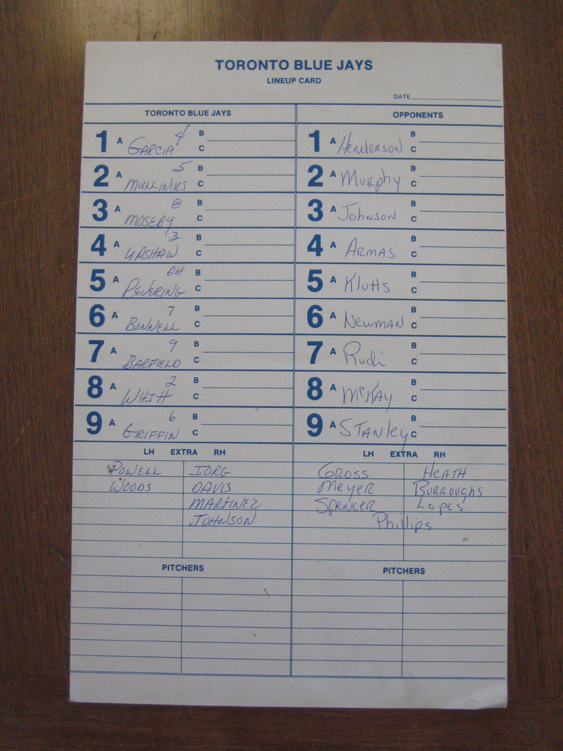 TORONTO BLUE JAYS
LINEUP CARD
DATE
TORONTO BLUE JAYS
1 A GARCIA 4 B C
2 A MULLINIKS 5 B C
3 A MOSEBY 8 B C
4 A UPSHAW 3 B C
5 A REVERING DH B C
6 A BONNELL 7 B C
7 A BARFIELD 9 B C
8 A WHITT 2 B C
9 A GRIFFIN 6 B C
LH EXTRA RH
POWELL IORG
WOODS DAVIS
MARTINEZ
JOHNSON
PITCHERS
OPPONENTS
1 A Henderson B C
2 A Murphy B C
3 A Johnson B C
4 A ARMAS B C
5 A Klutts B C
6 A Newman B C
7 A Rudi B C
8 A McKAY B C
9 A STANley B C
LH EXTRA RH
GROSS HEATH
Meyer Burroughs
Spencer Lopes
Phillips
PITCHERS